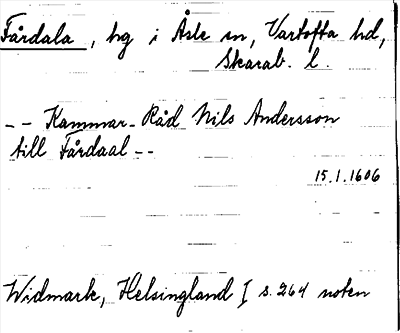 Fårdala, hg i Åsle sn, Vartofta hd,
Skarab. l.
-- Kammar-Råd Nils Andersson
till Fårdaal --
15.1.1606
Widmark, Helsingland I s. 264 noten